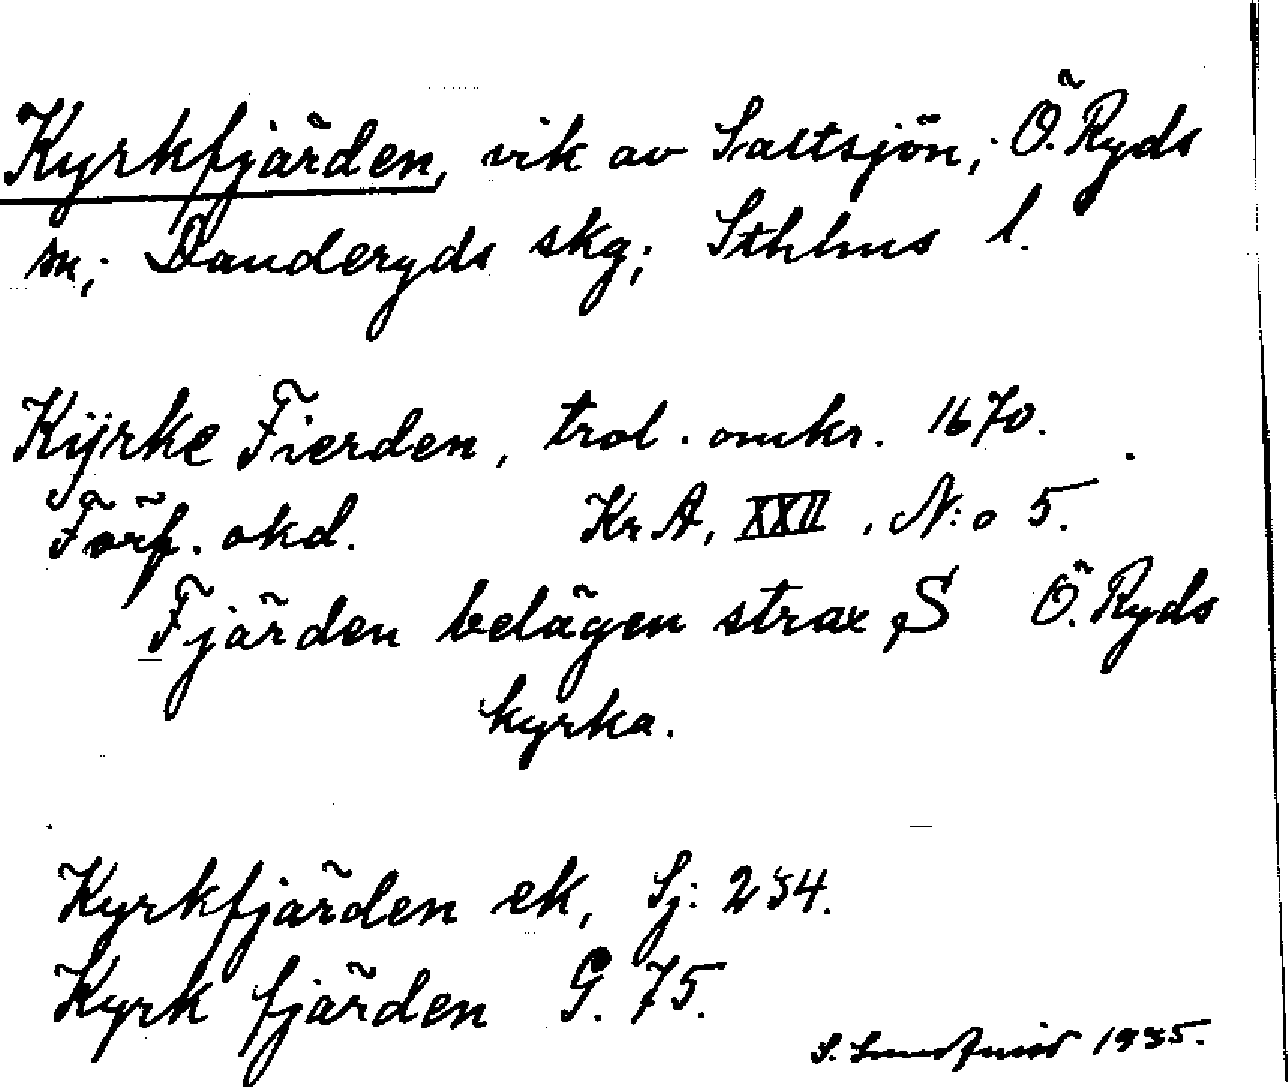 Kyrkfjärden, vik av Saltsjön; Ö. Ryds
sn; Danderyds skg; Sthlms l.
Kÿrke Fierden, trol. omkr. 1670.
Förf. okd. KrA, XXII, N:o 5.
Fjärden belägen strax S Ö. Ryds
kyrka.
Kyrkfjärden ek, Sj: 234.
Kyrk fjärden G. 75.
S. 1935.